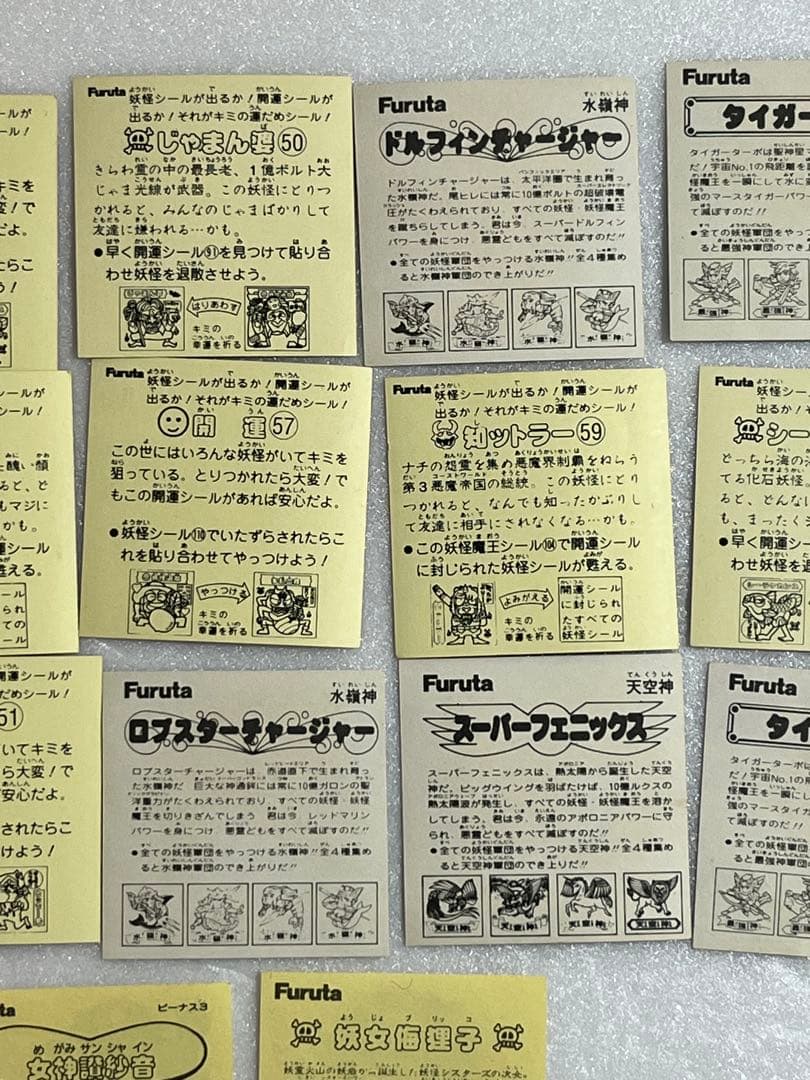 Furuta
妖怪シールが出るか!開運シールが
出るか!それがキミの運だめシール!
じゃまん連 50
きらわ霊の中の最長老、1億ボルト大
じゃま光線が武器。この妖怪にとりつ
かれると、みんなのじゃまばかりして
友達に嫌われる…かも。
●早く開運シール91を見つけて貼り合
わせ妖怪を退散させよう。
はりあわす
キミの
幸運を祈る
Furuta
水嶺神
ドルフィンチャージャー
ドルフィンチャージャーは、太平洋圏で生まれ育っ
た水嶺神だ。尾ヒレには常に10億ボルトの超破壊電
圧がたくわえられており、すべての妖怪・妖怪魔王
を蹴ちらしてしまう。君は今、スーパードルフィン
パワーを身につけ、悪霊どもをすべて滅ぼすのだ!!
●全ての妖怪軍団をやっつける水嶺神!!全4種集め
ると水嶺神軍団のでき上りだ!!
水嶺神
水嶺神
水嶺神
水嶺神
Furuta
タイガー
タイガーターボは聖神星マ
だ!宇宙No.1の飛距離を誇
怪魔王を一瞬にして水に
強のマースタイガーパワー
て滅ぼすのだ!!
●全ての妖怪軍団をやっつ
ると最強神軍団のでき上
最強神
最強神
Furuta
妖怪シールが出るか!開運シールが
出るか!それがキミの運だめシール!
開運 57
この世にはいろんな妖怪がいてキミを
狙っている。とりつかれたら大変!で
もこの開運シールがあれば安心だよ。
●妖怪シール110でいたずらされたらこ
れを貼り合わせてやっつけよう!
やっつける
キミの
幸運を祈る
Furuta
妖怪シールが出るか!開運シールが
出るか!それがキミの運だめシール!
知ットラー 59
ナチの怨霊を集め悪魔界制覇をねらう
第3悪魔帝国の総統。この妖怪にとり
つかれると、なんでも知ったかぶりし
て友達に相手にされなくなる…かも。
●この妖怪魔王シール104で開運シール
に封じられた妖怪シールが甦える。
よみがえる
キミの
幸運を祈る
開運シール
に封じられ
たすべての
妖怪シール
Furuta
妖怪シールが
出るか!それ
シー
どっちら海の
てる化石妖怪。
ると、どんな
も、まったく
●早く開運シール
わせ妖怪を退
51
Furuta
水嶺神
ロブスターチャージャー
ロブスターチャージャーは、赤道直下で生まれ育っ
た水嶺神だ。巨大な神通鋏には常に10億ガロンの聖
洋重力がたくわえられており、すべての妖怪・妖怪
魔王を切りきざんでしまう。君は今、レッドマリン
パワーを身につけ、悪霊どもをすべて滅ぼすのだ!!
●全ての妖怪軍団をやっつける水嶺神!!全4種集め
ると水嶺神軍団のでき上りだ!!
水嶺神
水嶺神
水嶺神
水嶺神
Furuta
天空神
スーパーフェニックス
スーパーフェニックスは、熱太陽から誕生した天空
神だ。ビッグウイングを羽ばたけば、10億ルクスの
熱太陽波が発生し、すべての妖怪・妖怪魔王を溶か
してしまう。君は今、永遠のアポロニアパワーに守
られ、悪霊どもをすべて滅ぼすのだ!!
●全ての妖怪軍団をやっつける天空神!!全4種集め
ると天空神軍団のでき上りだ!!
天空神
天空神
天空神
天空神
Furuta
タイ
タイガーターボは
だ!宇宙No.1の
怪魔王を一瞬にし
強のマースタイガー
て滅ぼすのだ!!
●全ての妖怪軍団を
ると最強神軍団の
最強神
ビーナス3
女神讃紗音
Furuta
妖女侮狸子
妖霊火山の妖岩から誕生した妖怪シスターズの次女。